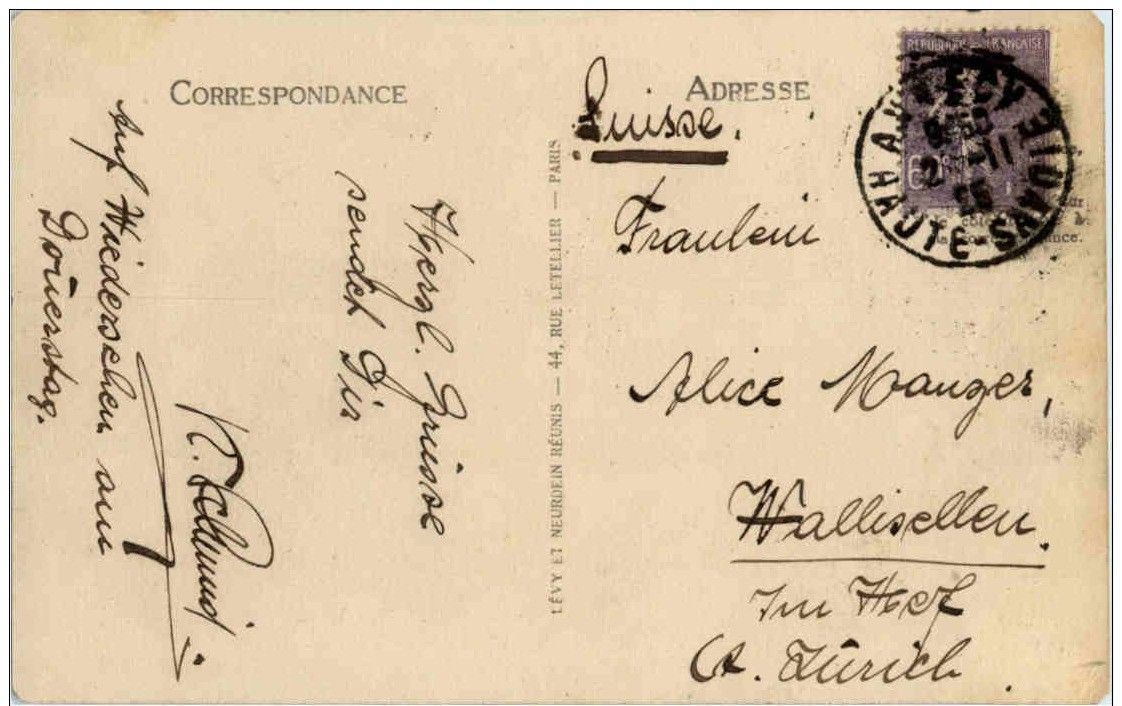 CORRESPONDANCE
Hergl. Grüsse
sendet Dir
K. Schmid.
Auf Wiedersehen am
Donerstag.
LÉVY ET NEURDEIN RÉUNIS — 44, RUE LETELLIER — PARIS
ADRESSE
RÉPUBLIQUE FRANÇAISE
HAUTE SAVOIE
2 - 11
Suisse.
Fraulein
Alice Manger,
Wallisellen.
Im Hof
Ct. Zürich